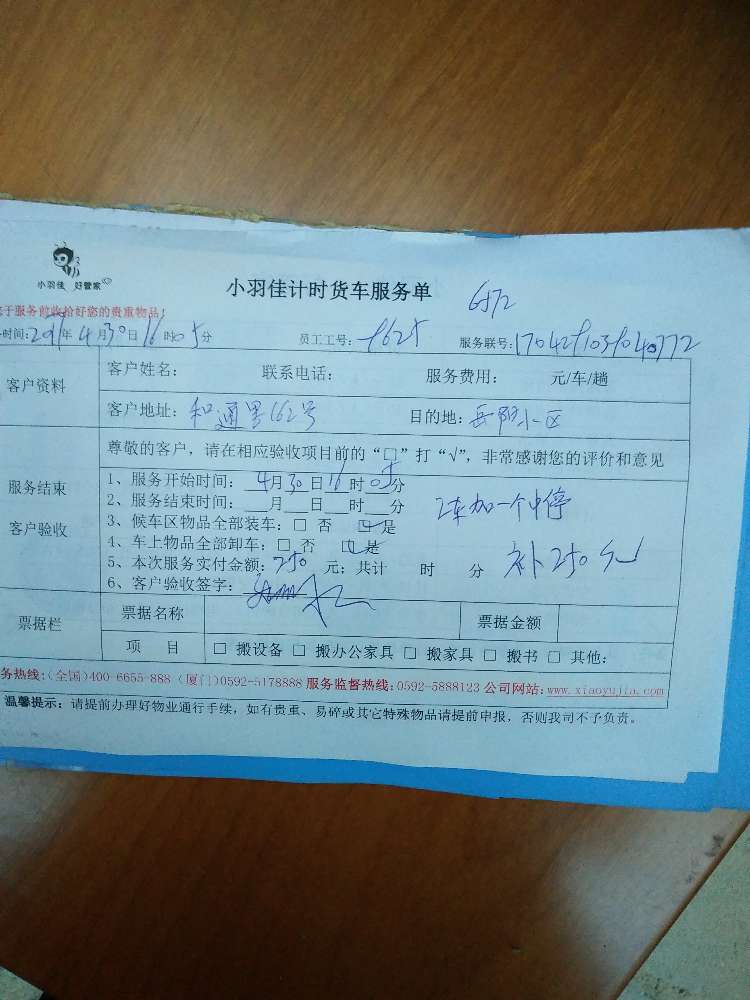 小羽佳 好管家
小羽佳计时货车服务单
6572
于服务前收拾好您的贵重物品!
时间:2017年4月30日16时05分 员工工号: 服务联号:
客户资料
客户姓名: 联系电话: 服务费用: 元/车/趟
客户地址:和通里162号 目的地:岳阳小区
服务结束
客户验收
尊敬的客户,请在相应验收项目前的“口”打“√”,非常感谢您的评价和意见
1、服务开始时间:4月30日16时05分
2、服务结束时间: 月 日 时 分
2车加一个中停
3、候车区物品全部装车:□ 否 ☑ 是
4、车上物品全部卸车:□ 否 ☑ 是
5、本次服务实付金额:750元;共计 时 分
补250元
6、客户验收签字:
票据栏
票据名称 票据金额
项 目 □ 搬设备 □ 搬办公家具 □ 搬家具 □ 搬书 □ 其他:
务热线:(全国)400-6655-888 (厦门)0592-5178888 服务监督热线:0592-5888123 公司网站:www.xiaoyujia.com
温馨提示:请提前办理好物业通行手续,如有贵重、易碎或其它特殊物品请提前申报,否则我司不予负责。